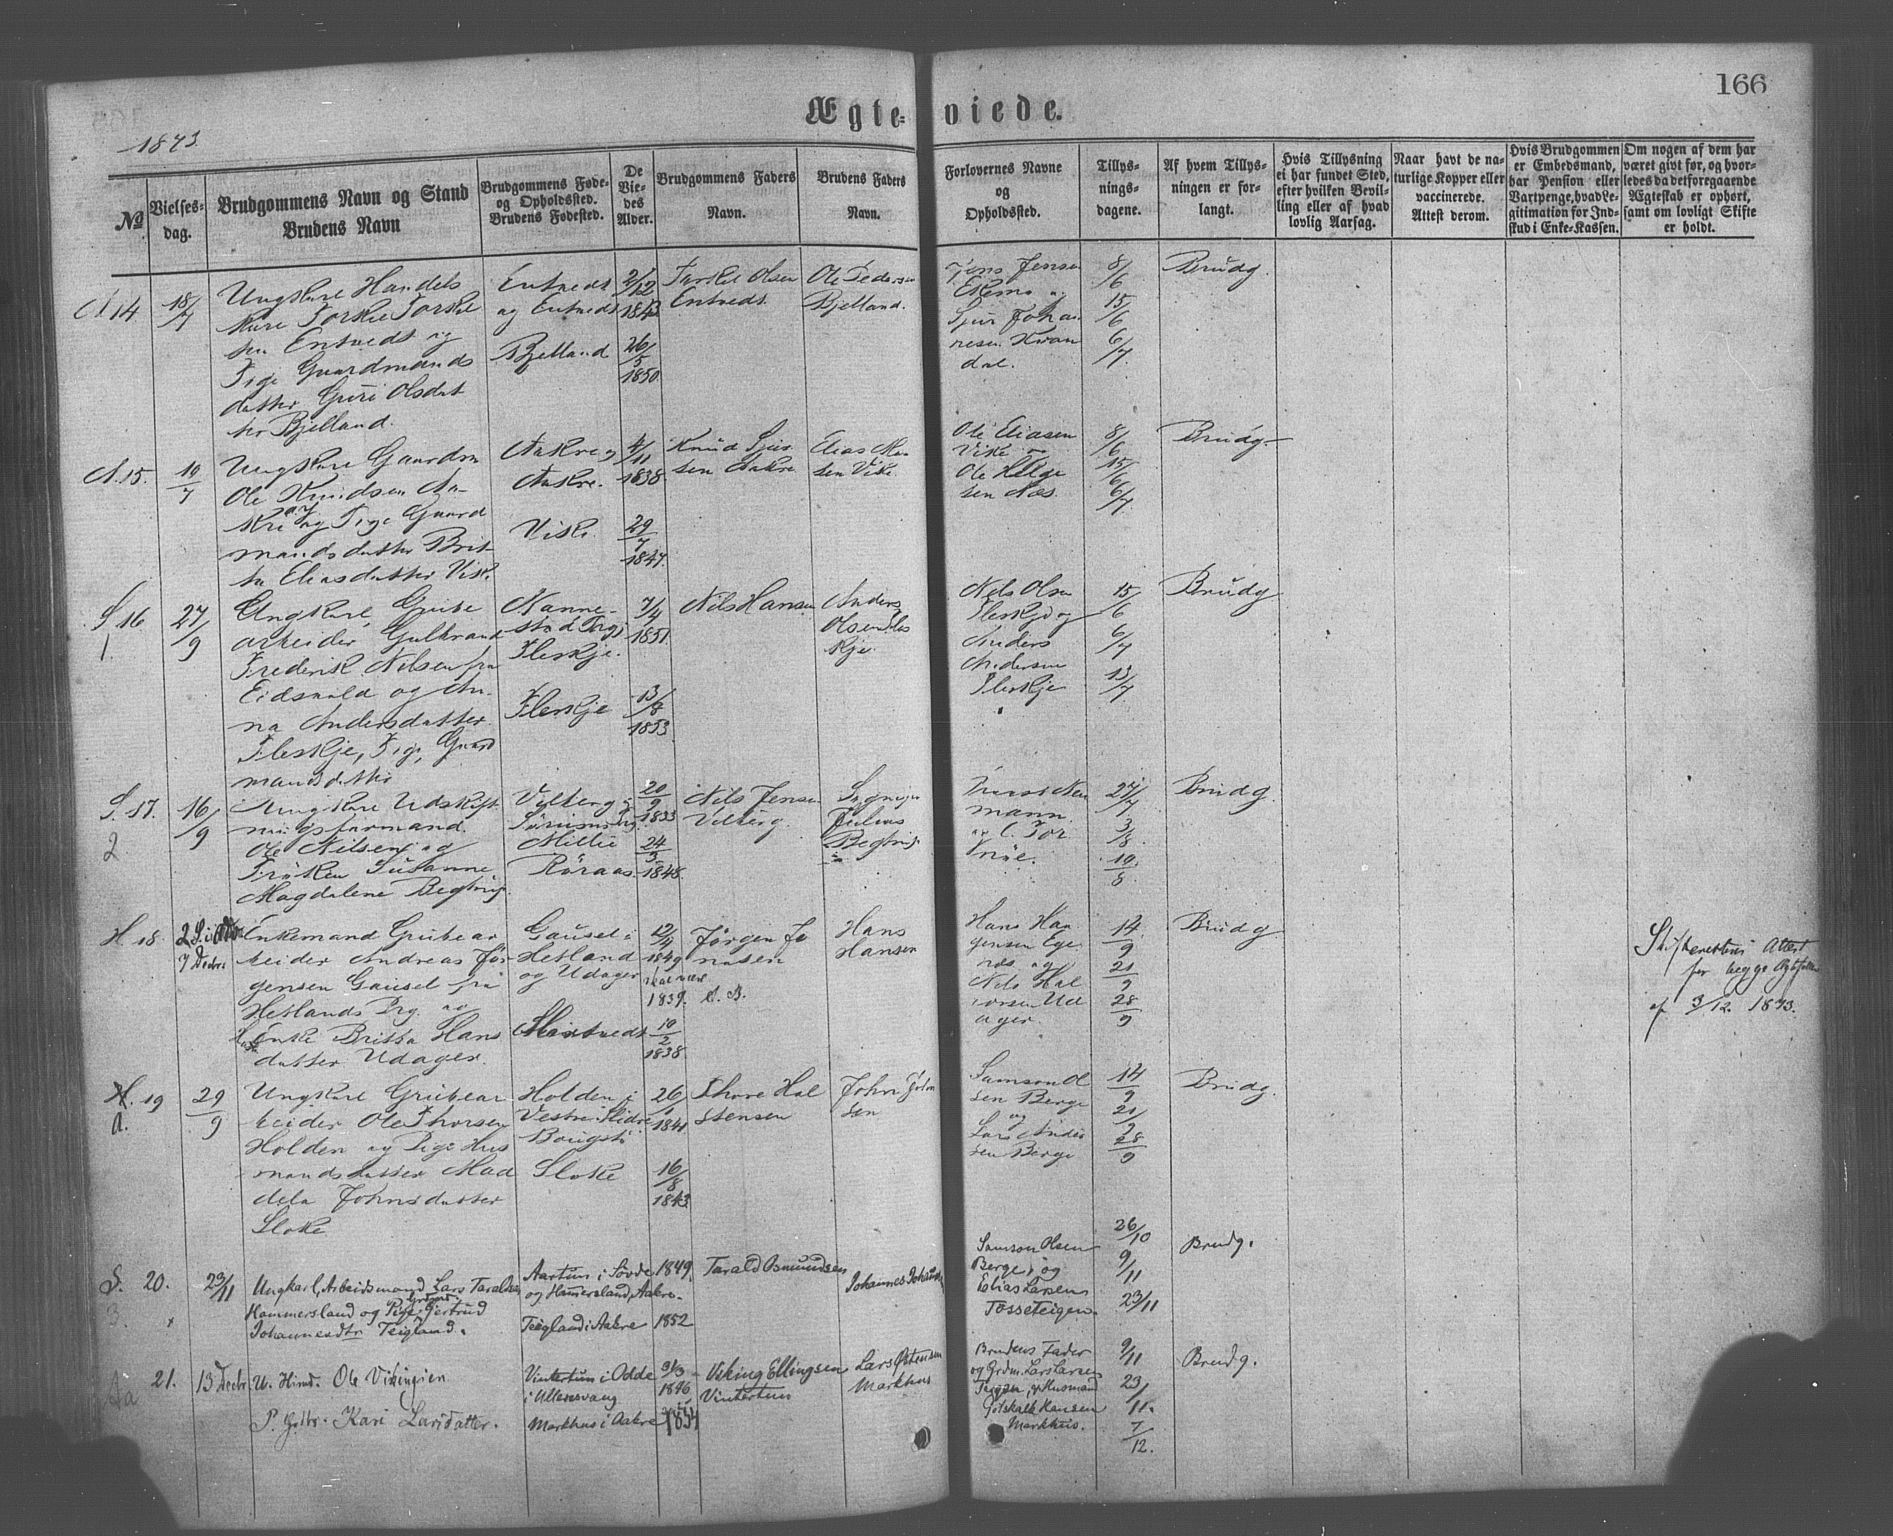 166
Ægteviede.
1873.
No
Vielses-
dag.
Brudgommens Navn og Stand
Brudens Navn
Brudgommens Føde-
og Opholdssted.
Brudens Fødested.
De
Vie-
des
Alder.
Brudgommens Faders
Navn.
Brudens Faders
Navn.
Forlovernes Navne
og
Opholdssted.
Tillys-
nings-
dagene.
Af hvem Tillys-
ningen er for-
langt.
Hvis Tillysning
ei har fundet Sted,
efter hvilken Bevil-
ling eller af hvad
lovlig Aarsag.
Naar havt de na-
turlige Kopper eller
vaccinerede.
Attest derom.
Hvis Brudgommen
er Embedsmand,
har Pension eller
Vartpenge, hvad Le-
gitimation for Ind-
skud i Enke-Kassen.
Om nogen af dem har
været givt før, og hvor-
ledes da det foregaaende
Ægteskab er ophørt,
samt om lovligt Skifte
er holdt.
14
18/7
Ungkarl Handels
Entvedt
og Entvedt
2/12
1843
Olsen
Entvedt
Ole Pedersen
Bjelland.
Entvedt og
Pige Gaardmands
datter Guri Olsdat
ter Bjelland.
Bjelland
26/5
1850.
Jens Jensen
og
Sjur Johan
nesen Kvan
dal.
8/6
15/6
6/7
Brudg.
A. 15.
19/7
Ungkarl Gaardm
Ole Knudsen Aa-
kre og Pige Gaard
mandsdatter Brit-
ta Eliasdatter Vik.
Aakre og
Aakre.
Vike.
4/11
1838.
29/7
1847.
Knud Sjur
sen Aakre
Elias
sen Vike.
Ole Eliasen
Vike og
Ole Helge
sen Næs.
8/6
15/6
6/7
Brudg.
S. 16
1.
27/9
Ungkarl, Grube
arbeider Gulbrand
Frederik Nilsen fra
Eidsvold og An-
na Andersdatter
Fleskje, Pige, Gaard
mandsdatter
Nanne-
stad Prgj.
Fleskje.
Fleskje
7/4
1851.
13/8
1853
Nils Hansen
Anders
Olsen Fles
kje.
Nels Olsen
Fleskje og
Anders
Andersen
Fleskje
15/6
6/7
13/7
Brudg
S. 17.
2
16/9
Ungkarl Udskift
ningsformand
Ole Nilsen og
Frøken Susanne
Magdalene Begtrup
Røraas.
20/9
1833
24/3
1848.
Nils Jensen
Julius
Begtrup
mann
27/7
3/8
10/8
Brudg.
H. 18.
7 Decbr.
Enkemand Grubear
beider Andreas Jør
gensen Gausel fra
Hetlands Prg. og
Enke Britta Hans
datter Udager.
Gausel i
Hetland
og Udager
12/4
1849
skal være
1839. S. B.
10/2
1838.
Jørgen Jo
nasen
Hans
Hansen
Hans Han
sen Ege
næs og
Nils Hal
vorsen Ud
ager.
14/9
21/9
28/9
Brudg
Skifterettens Attest
for begge Ægtefæller
af 3/12 1873.
19
A.
29/9
Ungkarl Grubear
beider Ole Thorsen
Holden og Pige Hus
mandsdatter Mad
dela Johnsdatter
Sloke
Holden i
Vestre Slidre
Sloke
26/
1841
16/8
1843
Thore Hal
stensen
John
sen
Samson Ol
sen Berge
og
Lars Ander
sen Berge
14/9
21/9
28/9
Brudg.
S. 20.
3.
23/11
Ungkarl, Arbeidsmand Lars Taraldsen
Hammersland og Pige, Gjertrud
Johannesdtr Teigland.
Aartun i Søvde
og Hamersland, Aakre.
Teigland i Aakre
1849
1852
Tarald Osmundsen
Johannes
Samson Olsen
Berge, og
Elias Larsen
Tosseteigen.
26/10
9/11
23/11
Brudg.
Aa
21.
13 Decbr.
U. Hmd. Ole Vikingsen
P. Gdtr. Kari Larsdatter.
Vintertun i Odde
i Ullensvang
Markhus i Aakre
31/3
1846
1854
Viking Ellingsen
Vintertun
Lars Østensen
Markhus
Brudens Fader
og Grdm. Lars Larsen
Teigen, og Husmand
Gotskalk Hansen
Markhus.
9/11
23/11.
7/12.
Brudg.